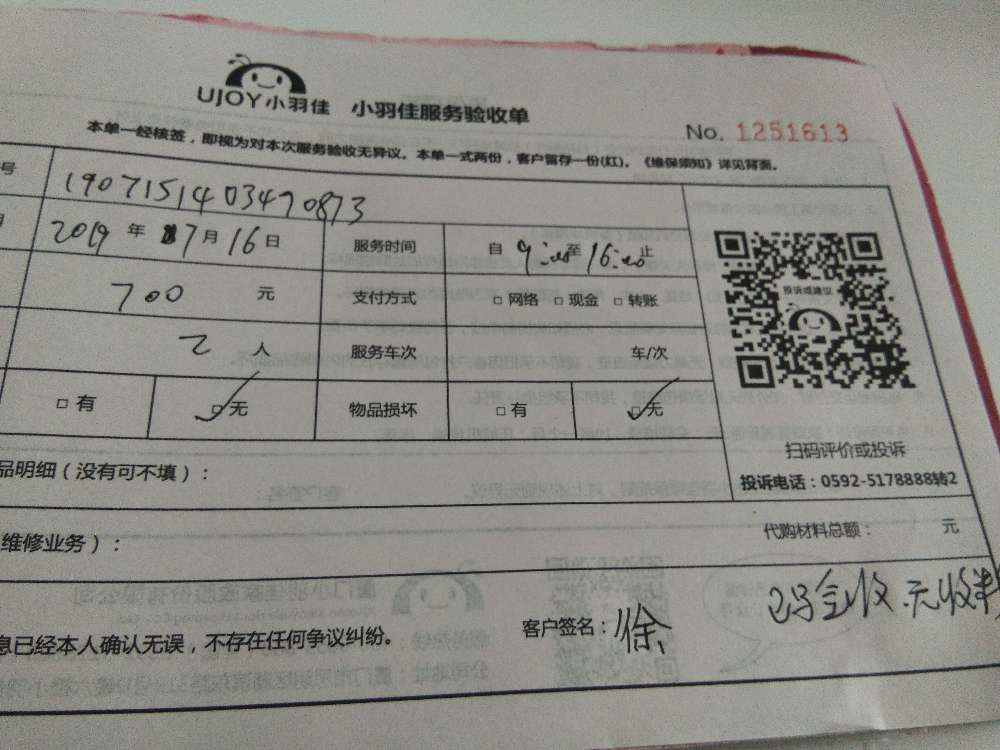 UJOY小羽佳 小羽佳服务验收单
No. 1251613
本单一经核签，即视为对本次服务验收无异议。本单一式两份，客户留存一份(红)。《维保须知》详见背面。
号 1907151403470873
2019 年 7 月 16 日 服务时间 自 9:00 至 16:00 止
投诉或建议
700 元 支付方式 □ 网络 □ 现金 □ 转账
2 人 服务车次 车/次
□ 有 ☑ 无 物品损坏 □ 有 ☑ 无
扫码评价或投诉
品明细（没有可不填）：
投诉电话：0592-5178888转2
代购材料总额： 元
维修业务）：
息已经本人确认无误，不存在任何争议纠纷。 客户签名：徐